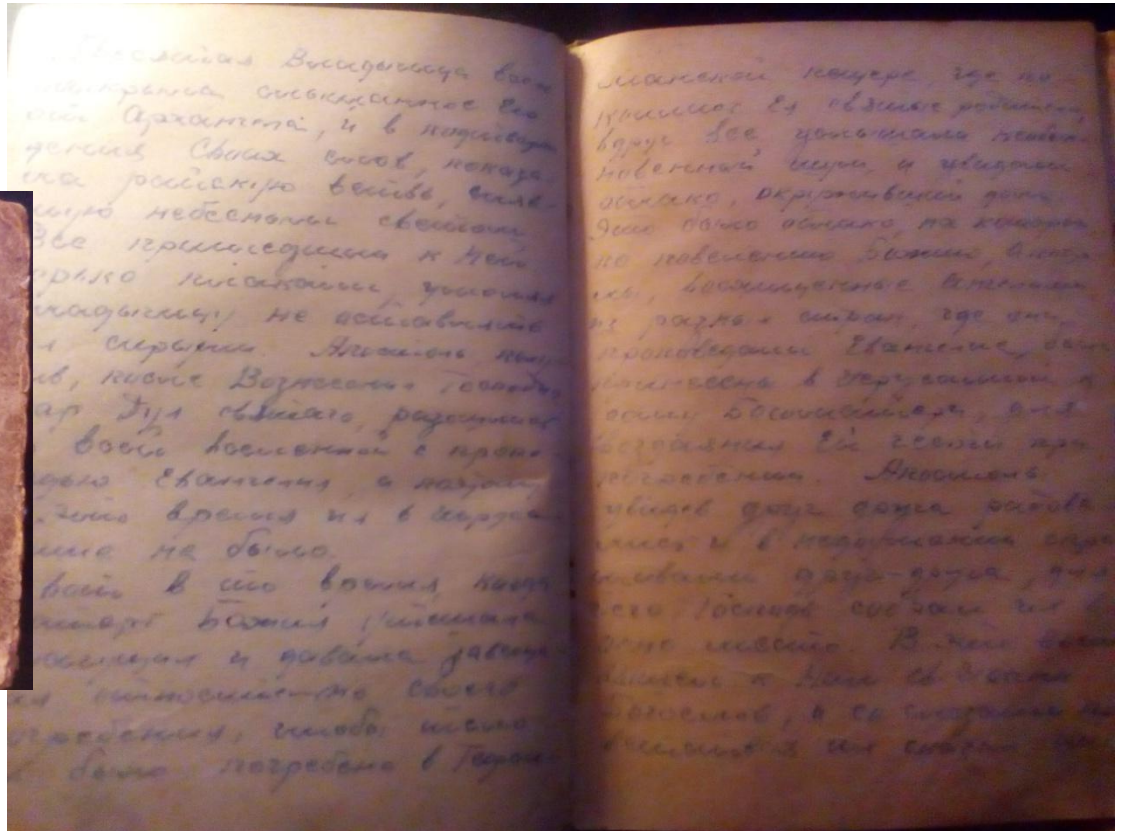 Владычица
Архангела, и в
Своих слов, показа-
ла райскую ветвь, сияв-
шую небесным светом.
Все пришедшие к Ней
горько плакали, умоляя
Владычицу не оставлять
их сирыми. Апостолы
после Вознесения Господня,
дар Духа святаго, разошлись
по всей вселенной с пропо-
ведью Евангелия, и потому
это время их в Иеруса-
лиме не было.
Вот в то время, когда
Матерь Божия утешала
и давала завеща-
относительно своего
погребения, чтобы тело
было погребено в Гефси-
манской пещере, где по-
Ея святые родители,
вдруг все услышали необык-
новенный шум, и увидели
облако, окружившее дом.
Это было облако, на котором
по повелению Божию, Апосто-
лы, восхищенные Ангелами
из разных стран, где они
проповедали Евангелие, были
принесены в Иерусалим к
дому Богоматери, для
воздаяния Ей чести при
погребении. Апостолы
увидев друг друга радова-
лись и в недоумении спра-
шивали друг-друга, для
чего Господь собрал их в
одно место. В это время
вышел к Ним св. Иоанн
Богослов, и со слезами